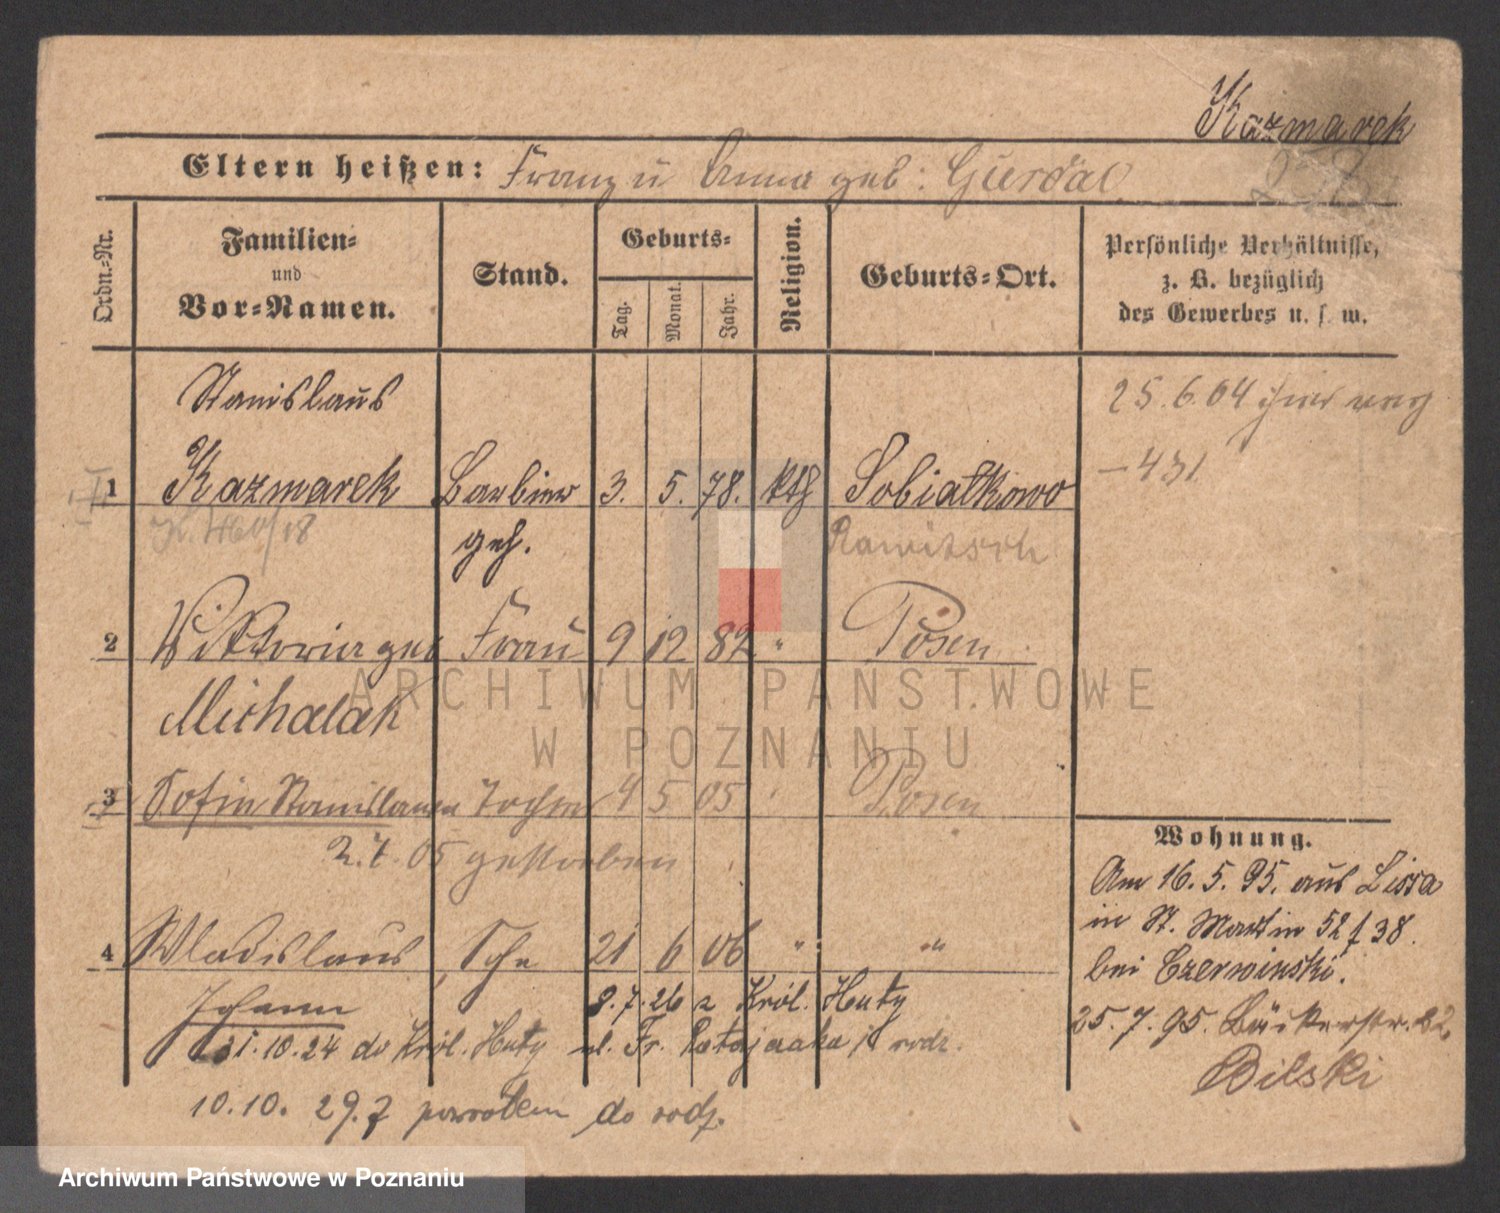 Kazmarek
Eltern heißen: Franz u Anna geb: Gürdal
Ordn.=Nr.
Familien=
und
Vor=Namen.
Stand.
Geburts=
Tag.
Monat.
Jahr.
Religion.
Geburts=Ort.
Persönliche Verhältnisse,
z. B. bezüglich
des Gewerbes u. s. w.
Stanislaus
25.6.04
1 Kazmarek Barbier 3. 5. 78. kth Sobialkowo
– 431
geh. Rawitsch
2 Wiktoria geb Frau 9 12 82 " Posen
Michalak
3 Sofia Stanislawa Tochter 4 5 05 Posen
2.7.05 gestorben
4 Wladislaus Sohn 21 6 06 " "
Johann 9.7.26 z Król. Huty
31.10.24 do Król. Huty ul. Fr. Ratajczaka rodz.
10.10.29. z powrotem do rodz.
Wohnung.
Am 16.5.95. aus Lissa
in St. Martin 52/ 38.
bei Czerwinski.
25.7.95. Bäckerstr.
Bilski
ARCHIWUM PAŃSTWOWE
W POZNANIU
Archiwum Państwowe w Poznaniu